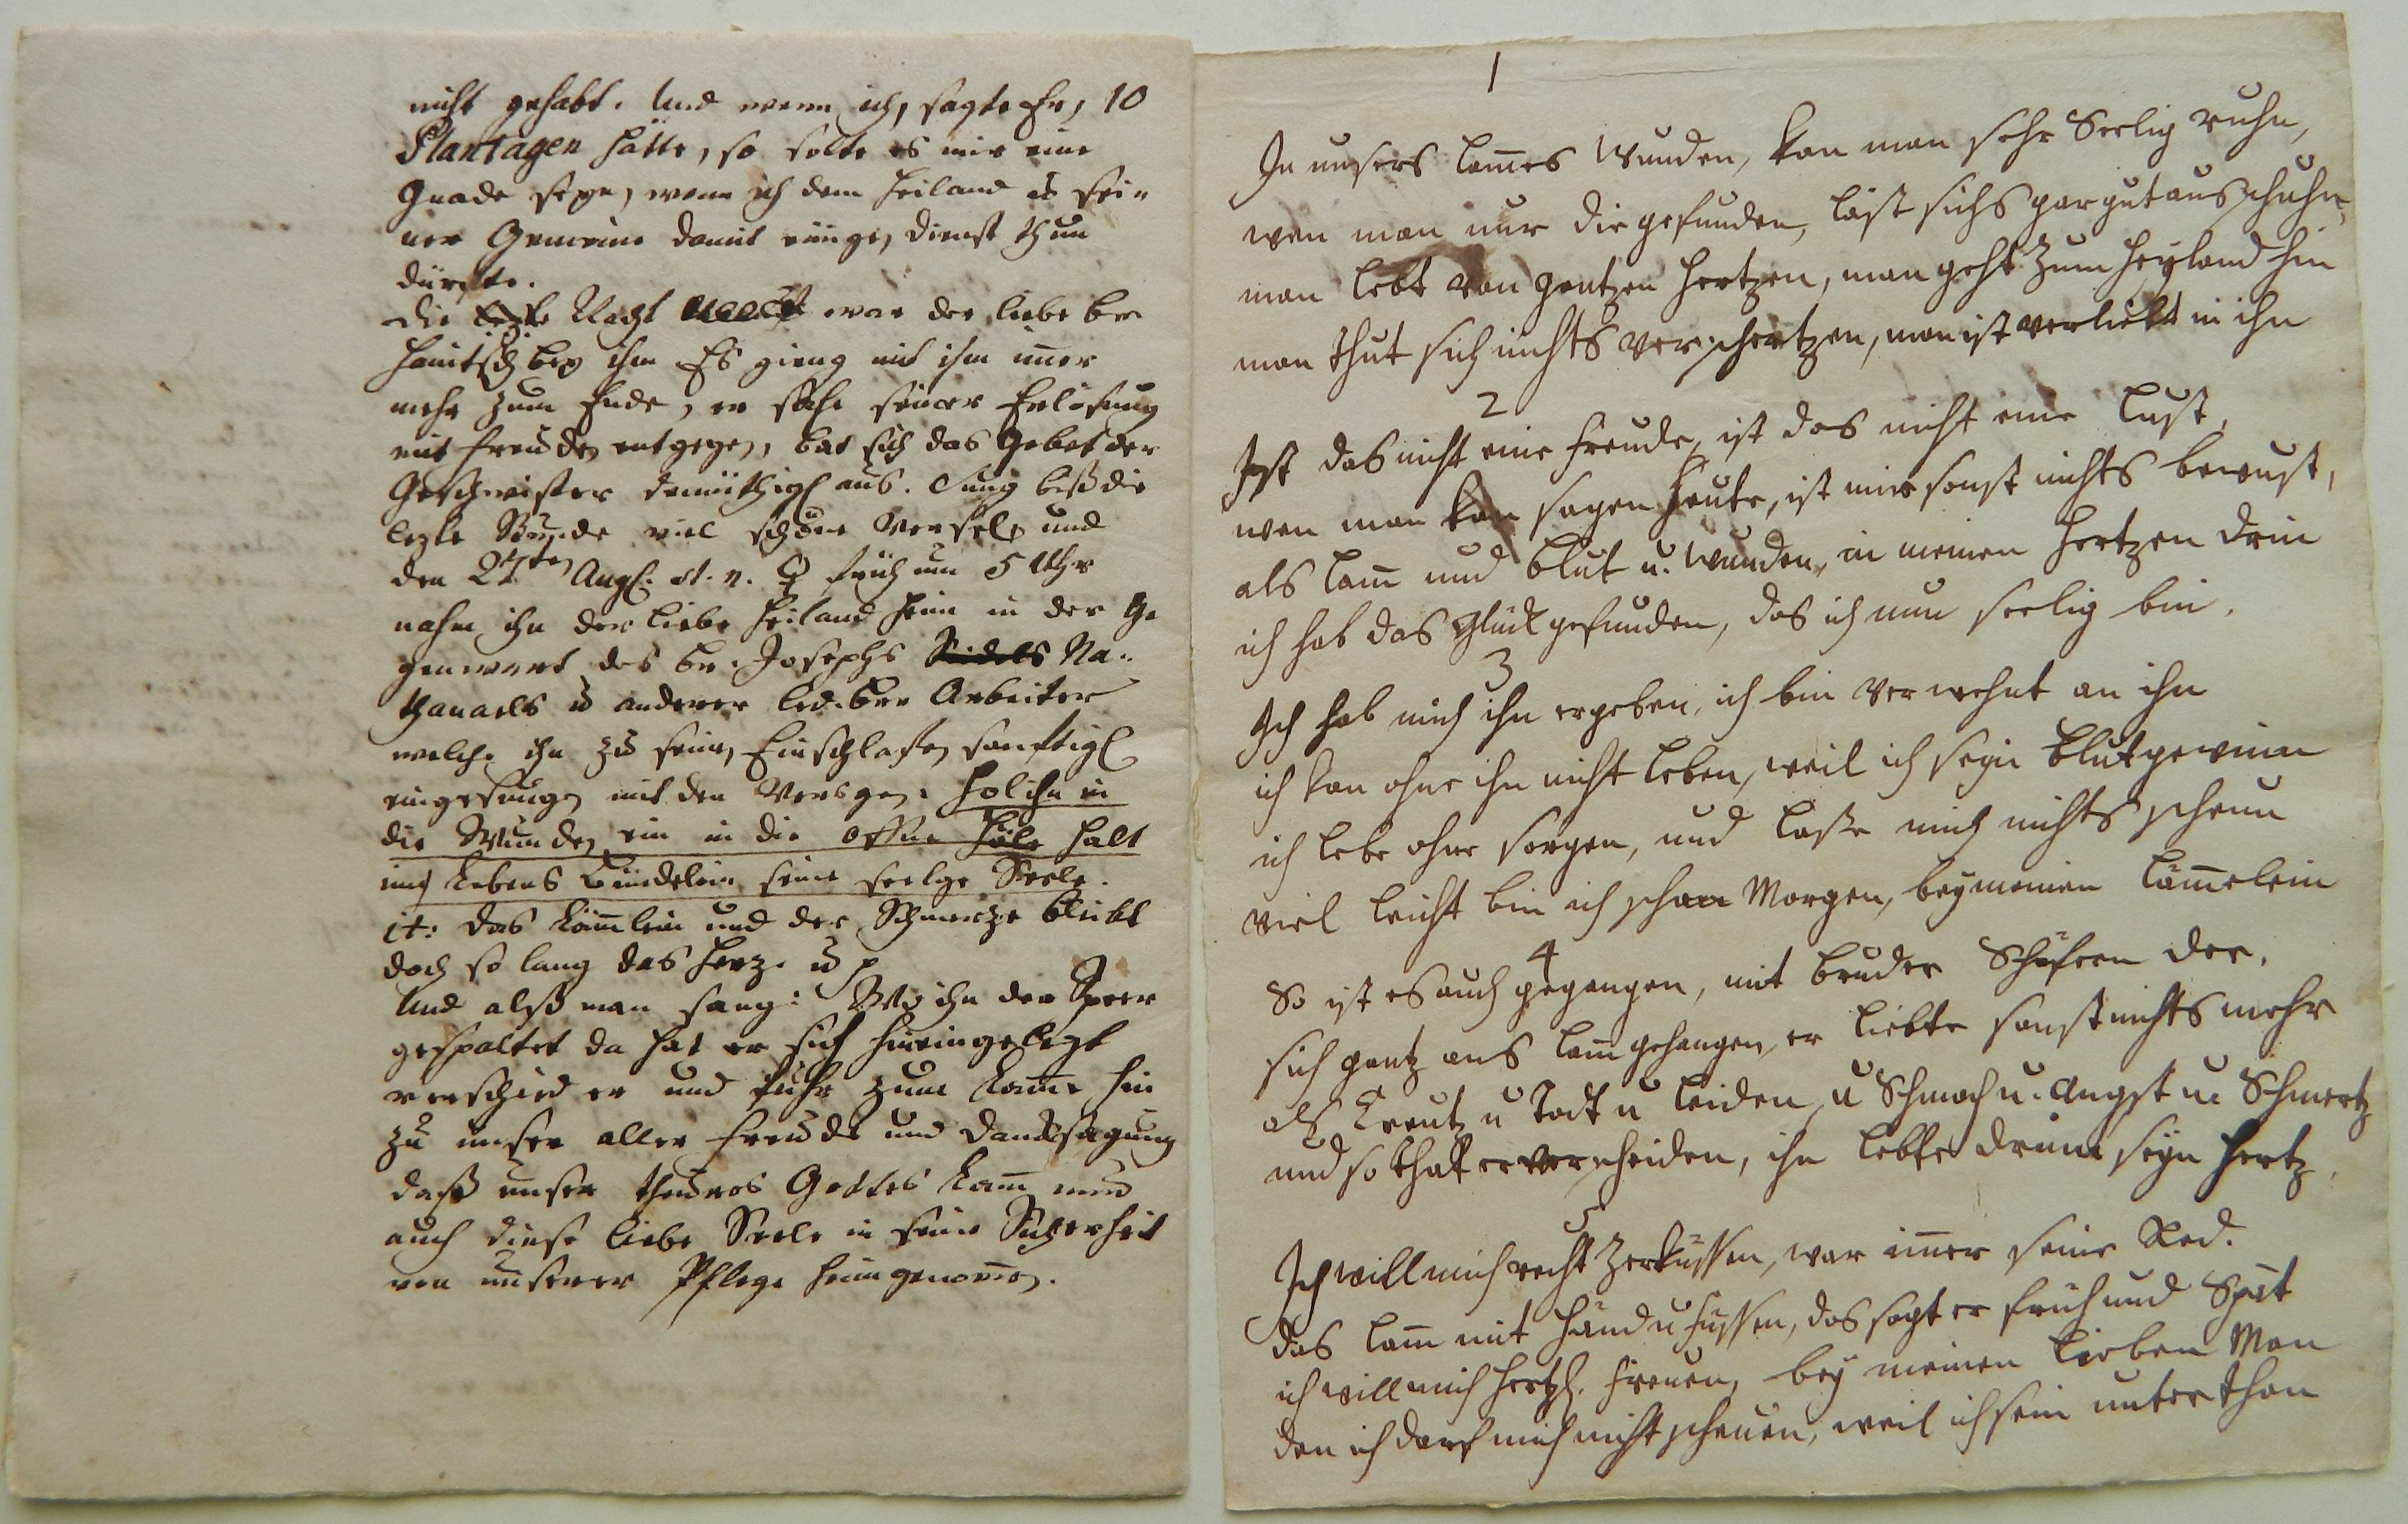 nicht gehabt. Und wenn ich, sagte Er, 10
Plantagen hätte, so solte es mir eine
Gnade seyn, wenn ich dem Heiland u sei-
ner Gemeine damit einigen Dienst thun
dürfte.
Die letzte Nacht war der liebe Br
bey ihm Es gieng mit ihm im̄er
mehr zum Ende, er sahe seiner Erlösung
mit Freuden entgegen, bat sich das Gebet der
Geschwister demüthigl aus. Sung biß die
lezte Stunde viel schöne Versel und
den 27ten Augl. st. n. ☿ früh um 5 Uhr
nahm ihn der liebe Heiland heim in der Ge
genwart des Br. Josephs Seidels Na-
thanaels u anderer led. Brr Arbeiter
welche ihn zu seinen Einschlafen sanftigl
eingesungen mit den Versgen: Hol ihn in
die Wunden ein in die offne Höle halt
ins Lebens Bündelein seine seelge Seele.
it: Das Läm̄lein und der Schmerze bleibt
doch so lang das Herze u p
Und alß man sang: Wo ihn der Speer
gespaltet da hat er sich hineingelegt
verschied er und fuhr zum Lam̄e hin
zu unser aller Freude und Danksagung
daß unser theures Gottes Lam̄ nun
auch diese liebe Seele in seine Sicherheit
von unserer Pflege heimgenom̄en.
1
In unsers Lam̄es Wunden, kan man sehr Seelig ruhn,
wen man nur die gefunden, läst sichs gar gut
man lebt von gantzen Hertzen, man geht zum Heyland hin
man thut sich nichts verschertzen, man ist verliebt in ihn
2
Ist das nicht eine Freude, ist das nicht eine Lust,
wen man kan sagen heute, ist mir sonst nichts bewust,
als Lam̄ und Blut u. Wunden, in meinen Hertzen drin
ich hab das Glück gefunden, das ich nun seelig bin.
3
Ich hab mich ihn ergeben, ich bin verwehnt an ihn
ich kan ohne ihn nicht leben, weil ich seyn Blutgewinn
ich lebe ohne sorgen, und laße mich nichts scheun
viel leicht bin ich schon Morgen, bey meinen Läm̄elein
4
So ist es auch gegangen, mit Bruder Schäfern der,
sich gantz ans Lam̄ gehangen, er liebte sonst nichts mehr
als Creutz u Todt u Leiden, u Schmach u. Angst u. Schmertz
und so that er verscheiden, ihn lebte drum seyn Hertz,
5
Ich will mich recht zerküssen, war im̄er seine Red.
das Lam̄ mit Händ u Füssen, das sagt er früh und Spät
ich will mich hertzl. freuen, bey meinen lieben Man
den ich darf mich nicht scheuen, weil ich sein unterthan